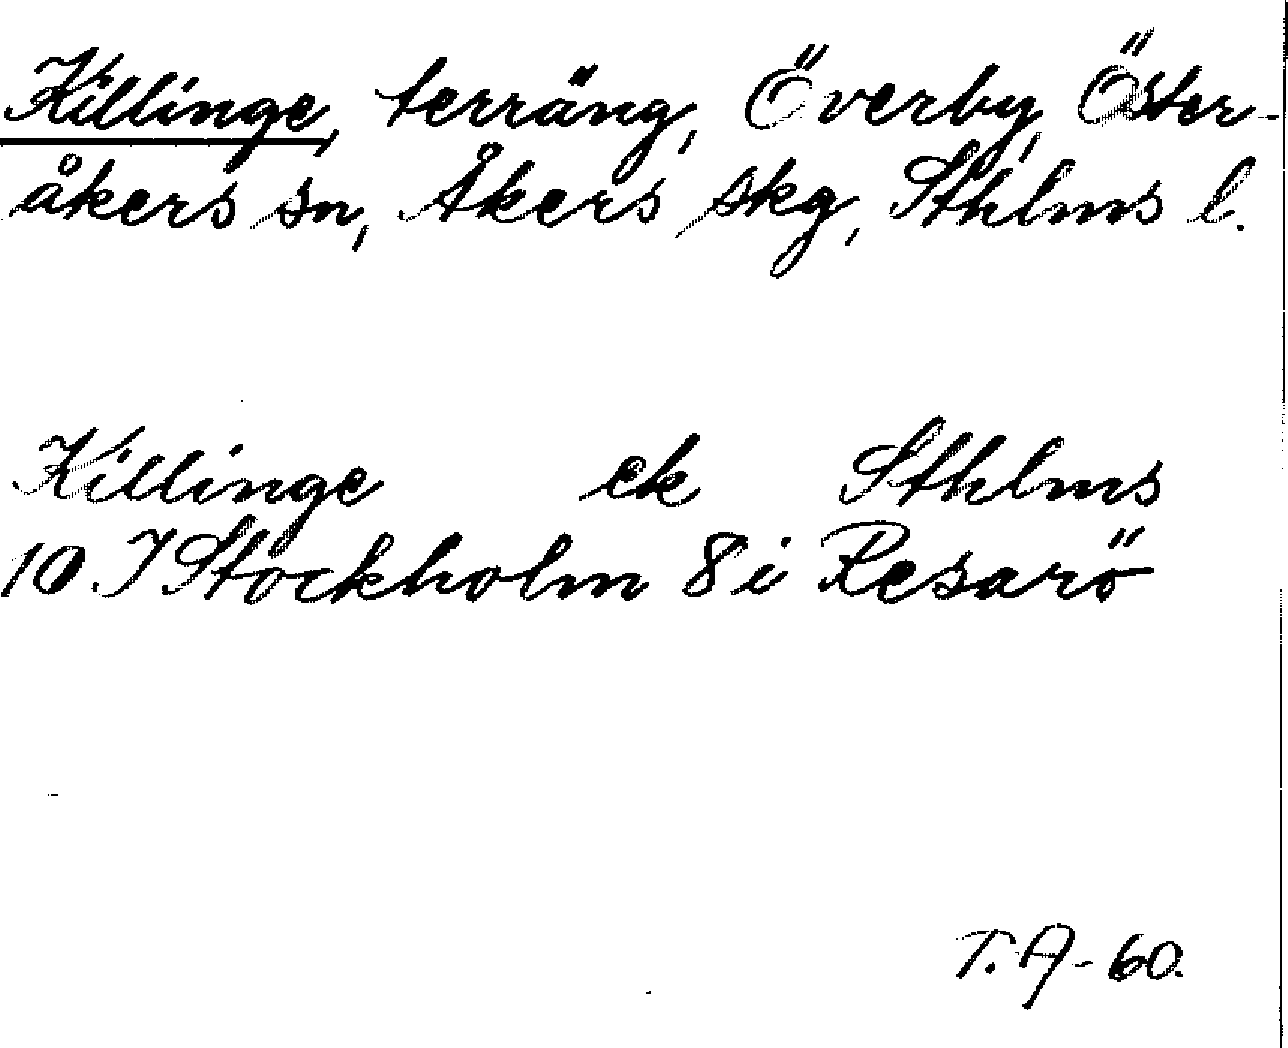 Killinge, terräng, Överby, Öster-
åkers sn, Åkers skg, Sthlms l.
Killinge ek Sthlms
10. I Stockholm 8 i Resarö
T. A-60.